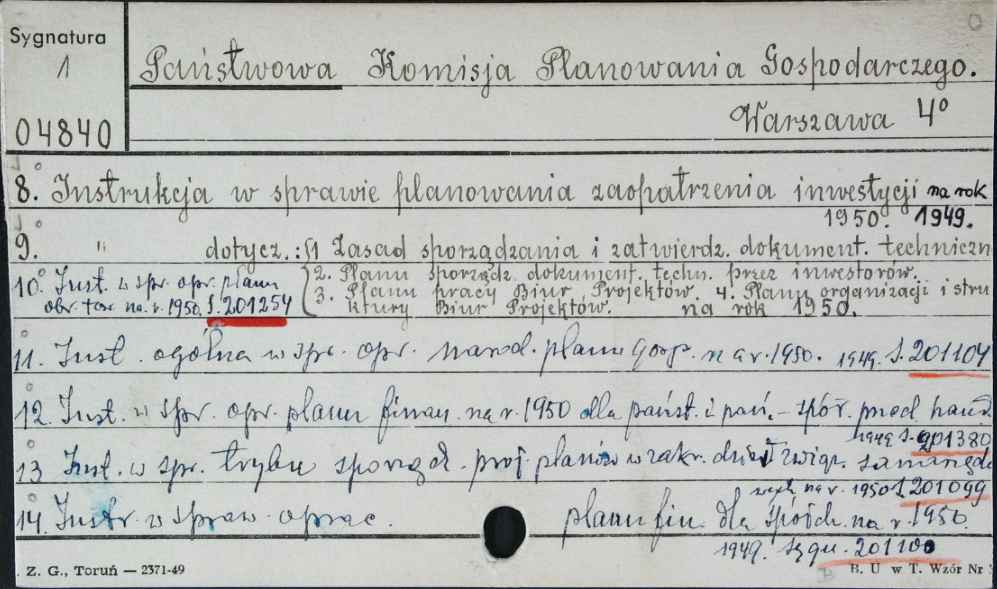 Sygnatura
1
04840
Państwowa Komisja Planowania Gospodarczego.
Warszawa 4°
8. Instrukcja w sprawie planowania zaopatrzenia inwestycji na rok
1950. 1949.
9. " dotycz.: 1 Zasad sporządzania i zatwierdz. dokument. techniczn
2. Planu sporządz. dokument. techn. przez inwestorów.
3. Planu pracy Biur Projektów. 4. Planu organizacji i stru
ktury Biur Projektów. na rok 1950.
10. Inst. w spr. opr. planu
obr. tow. na r. 1950. S. 201254
11. Inst. ogólna w spr. opr. narod. planu gosp. na r. 1950. 1949. S. 201104
12. Inst. w spr. opr. planu finan. na r. 1950 dla państ. i pań. - spół.
1949 S. 201380
13 Inst. w spr. trybu sporząd. proj. planów w zakr. dział. związ. samorząd
na r. 1950 S. 201099
14. Instr. w spraw. oprac. planu fin. dla spółdz. na r. 1950.
1949. Sygn. 201100
Z. G., Toruń — 2371-49
B. U w T. Wzór Nr